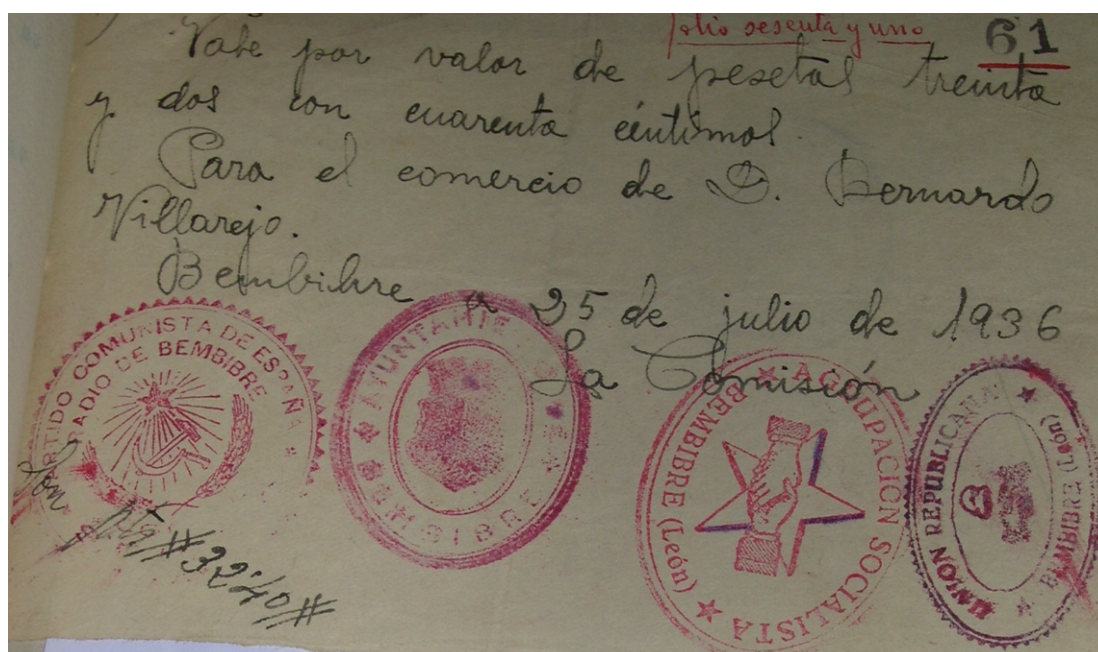 folio sesenta y uno 61
Vale por valor de pesetas treinta
y dos con cuarenta céntimos.
Para el comercio de D. Bernardo
Villarejo.
Bembibre a 25 de julio de 1936
La Comisión
PARTIDO COMUNISTA DE ESPAÑA
RADIO DE BEMBIBRE
AYUNTAMIE
BEMBIBRE
AGRUPACION SOCIALISTA
BEMBIBRE (León)
UNION REPUBLICANA
BEMBIBRE (León)
Son Pts #32'40#